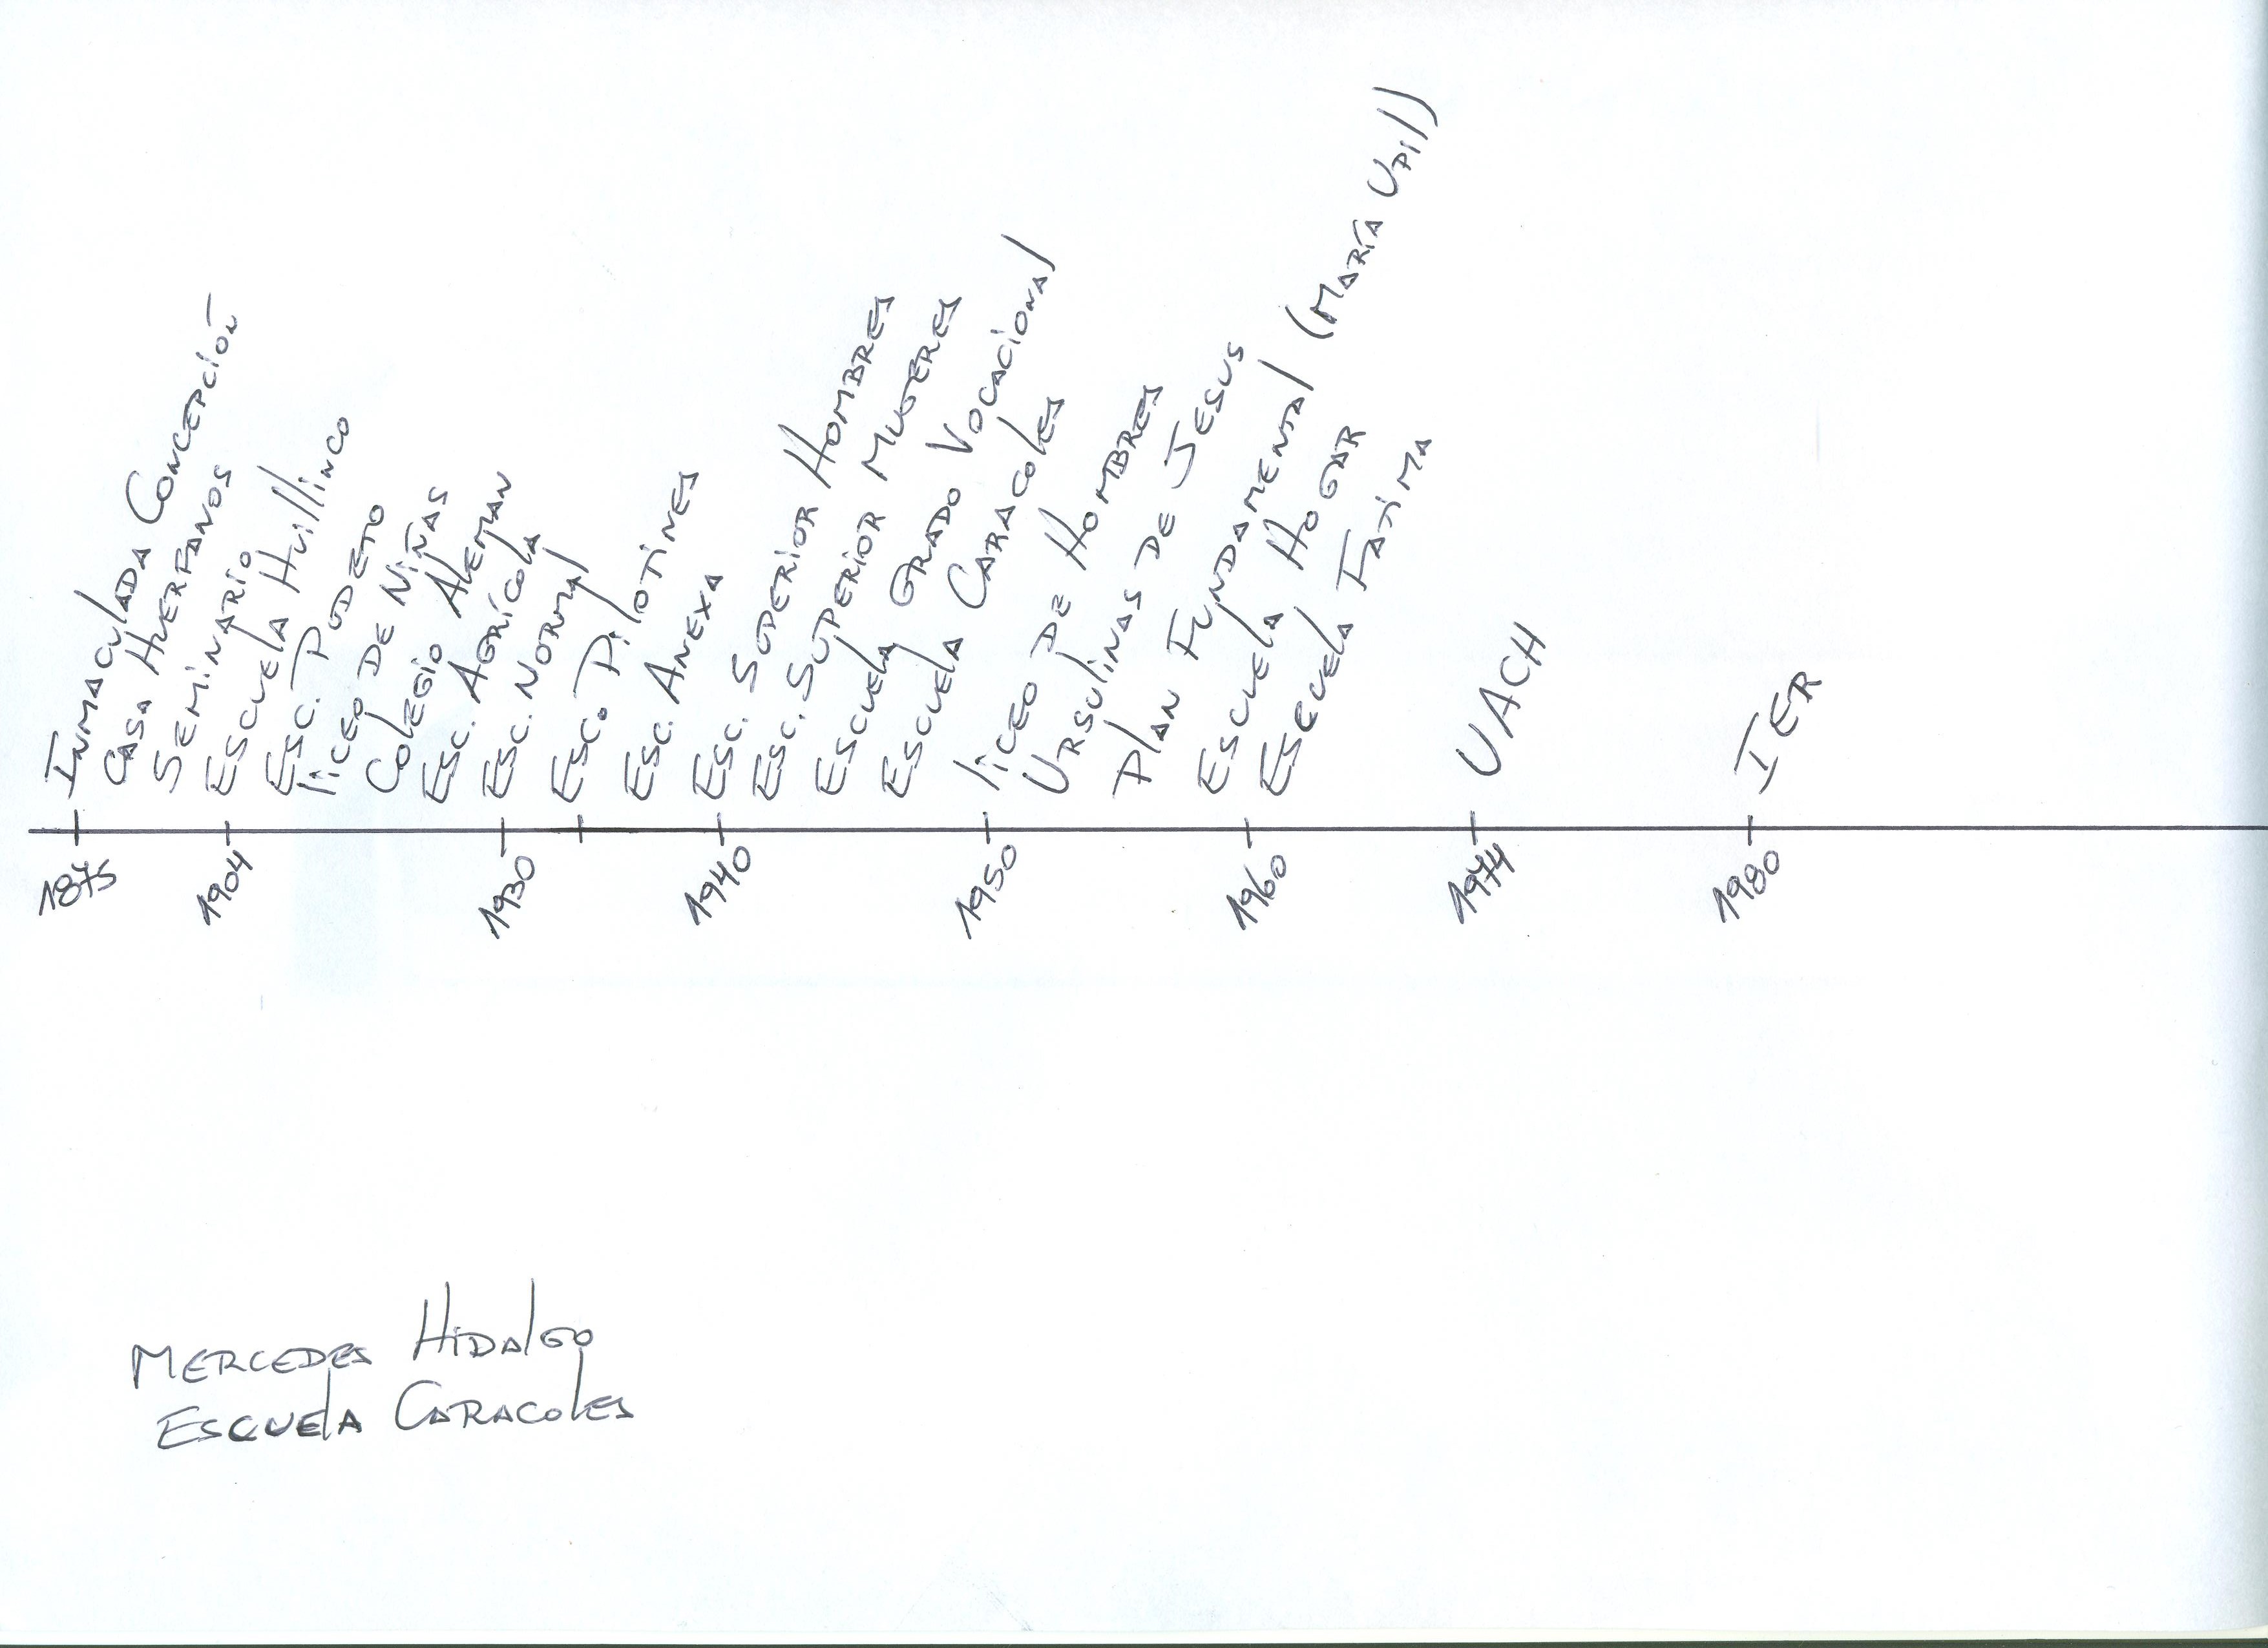 Inmaculada Concepción
Casa Huerfanos
Seminario
Escuela Huillinco
Esc. Pudeto
liceo de Niñas
Colegio Aleman
Esc. Agrícola
Esc. Normal
Esc. Pilotines
Esc. Anexa
Esc. Superior Hombres
Esc. Superior Mujeres
Escuela Grado Vocacional
Escuela Caracoles
liceo de Hombres
Ursulinas de Jesus
Plan Fundamental (María Upil)
Escuela Hogar
Escuela Fatima
UACH
IER
1875
1904
1930
1940
1950
1960
1974
1980
Mercedes Hidalgo
Escuela Caracoles